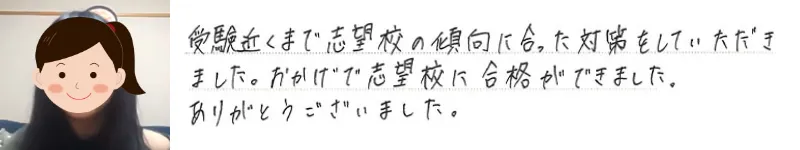 受験近くまで志望校の傾向に合った対策をしていただき
ました。おかげで志望校に合格ができました。
ありがとうございました。